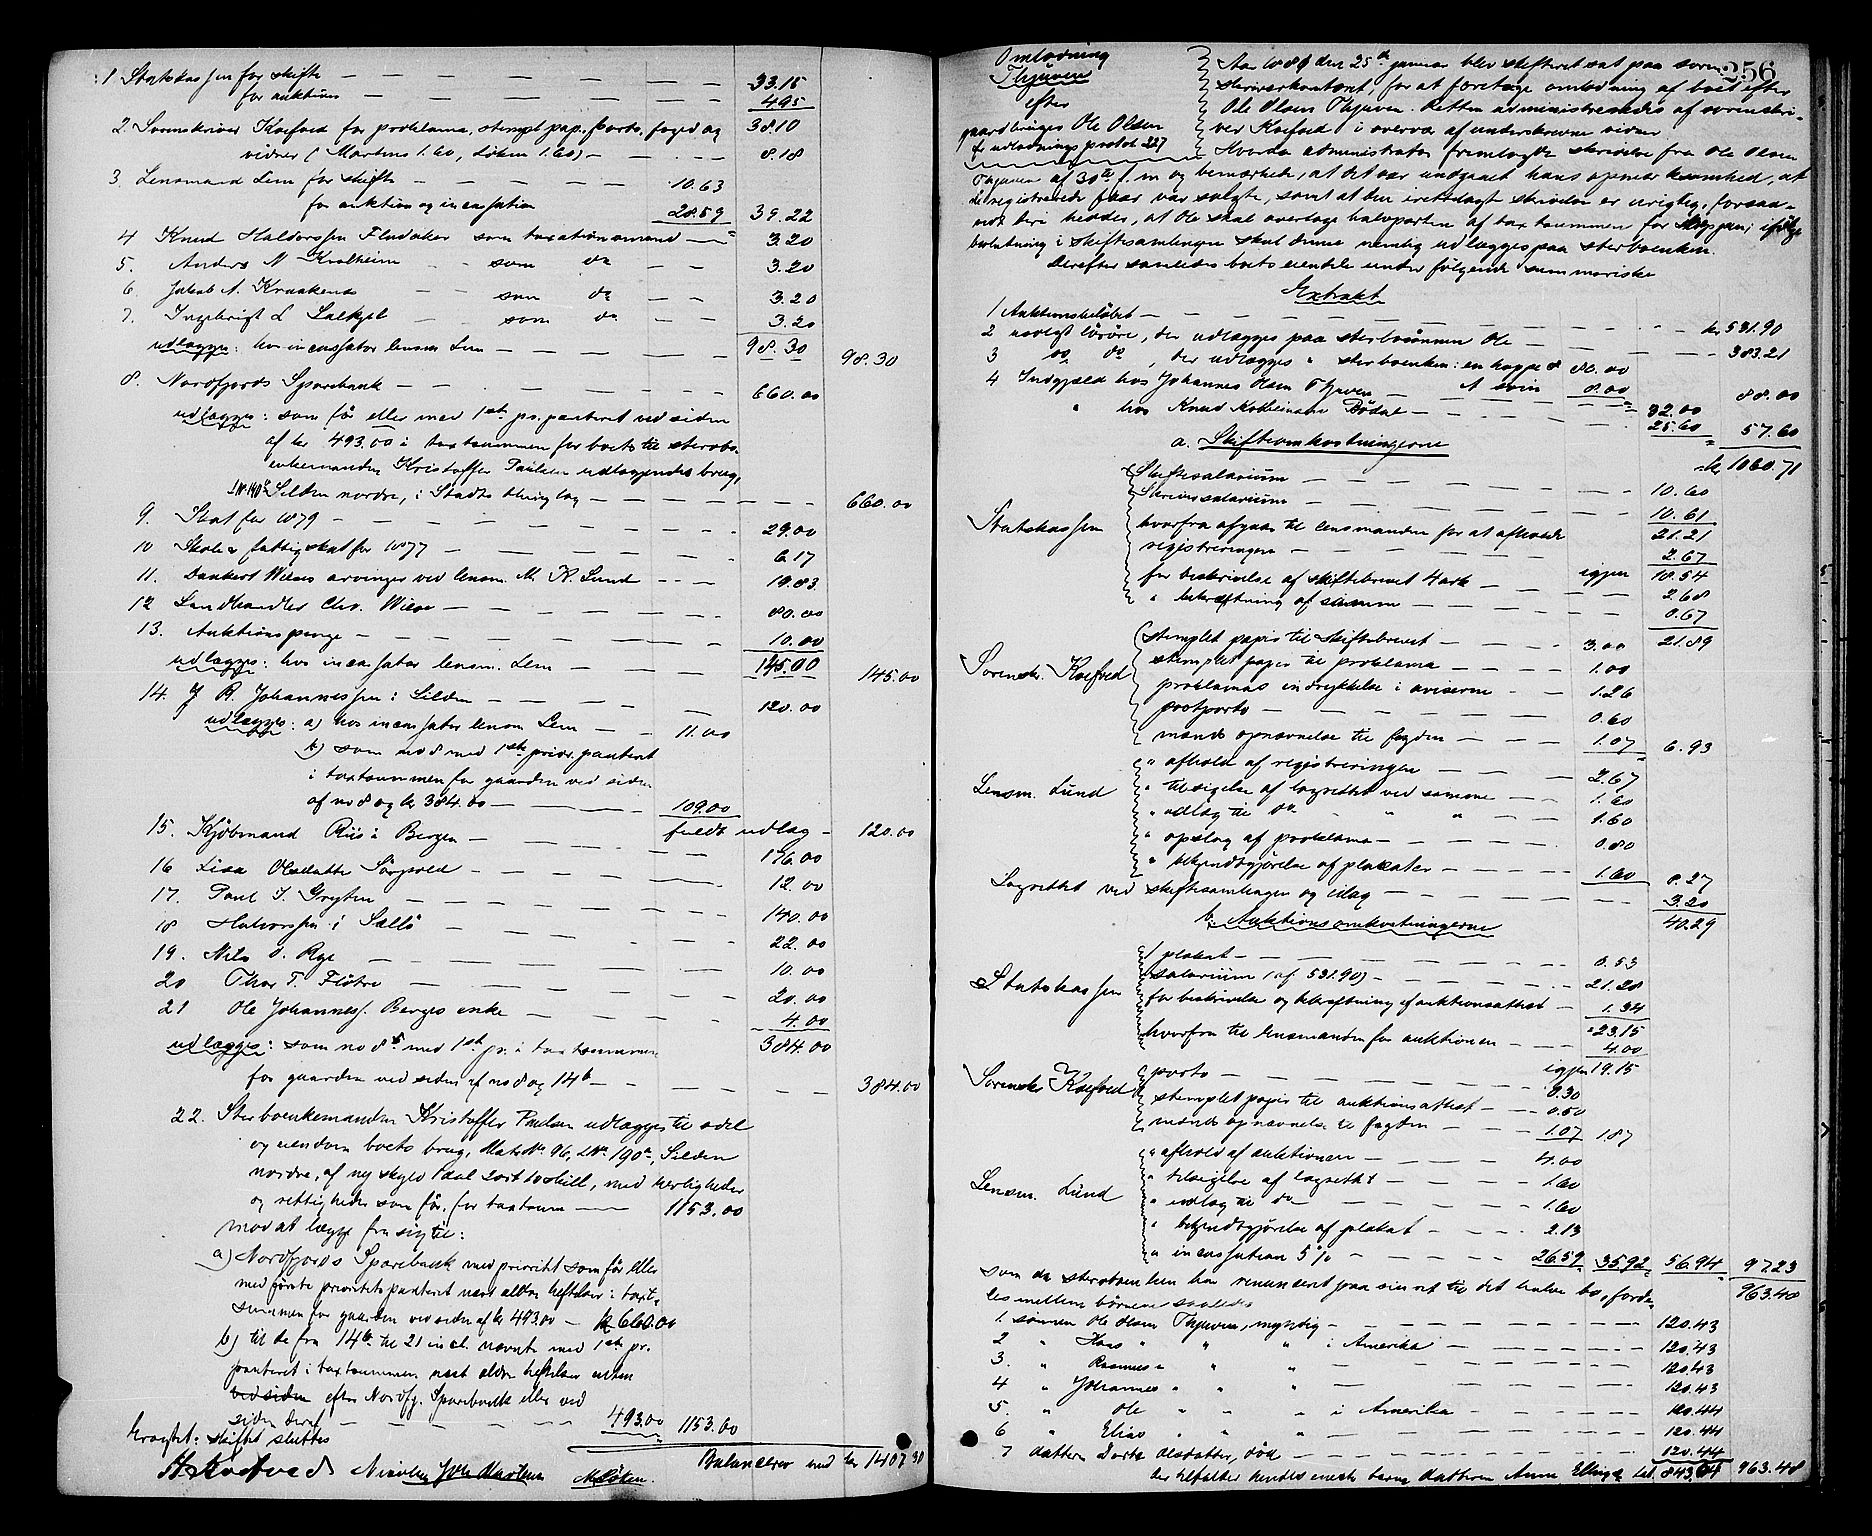 1 Statskassen for skifte — — — — — 33.15
for auktion — — — — — 4.95
2. Sorenskriver Koefoed for proklama, stempl. pap., porto, foged og 38.10
vidner (Martens 1.60, Löken 1.60) — — — 8.18
3. Lensmand Lem for skifte — — — — 10.63
for auktion og incassation 28.59 39.22
4 Knud Haldorssen Fludaker som taxationsmand — 3.20
5. Anders N. som do — — 3.20
6. Jakob A. som do — — 3.20
7. Ingebrigt L. som do — — 3.20
udlægges: hos incassator lensm. Lem — — — — 98.30 98.30
8. Nordfjords Sparebank — — — — — 660.00
udlægges: som för eller med 1ste pr. panteret ved siden
af kr 493.00 i taxtsummen for boets til sterbo-
enkemanden Kristoffer Paulsen udlagendes brug,
Silden nordre, i Stadts thinglag — — — — — 660.00
9. Skat for 1879 — — — — — — 29.00
10 Skole & fattigskat for 1877 — — — — — 6.17
11. Dankert Wiens arvinger ved lensm. M. K. Lund — — — 19.83
12 Landhandler Chr. Wiese — — — — — 80.00
13. Auktionspenge — — — — — 10.00
udlægges: hos incassator lensm. Lem — — — 145.00 145.00
14. J. R. Johannessen i Silden — — — — 120.00
udlægges: a) hos incassator lensm. Lem — — 11.00
b) som no 8 med 1ste prior. panteret
i taxtsummen for gaarden ved siden
af no 8 og kr 384.00 — — 109.00
fuldt udlæg — 120.00
15. Kjöbmand Riis i Bergen — — — — 176.00
16 Lisa Olsdatter — — — — 12.00
17. Paul J. Gryten — — — — 140.00
18 Halvorssen i — — — — 22.00
19. Nils O. Rye — — — — 10.00
20 Thor T. Flötre — — — — 20.00
21 Ole Johanness. Berges enke — — — — 4.00
udlægges: som no 8 med 1ste pr. i taxtsummen 384.00
for gaarden ved siden af no 8 og 14b — — — — — 384.00
22. Sterboenkemanden Kristoffer Paulsen udlægges til odel
og eiendom boets brug, Mats No 96, LNo 190a, Silden
nordre, af ny skyld 1 daler 2 ort 10 skill, med herligheder
og rettigheder som för, for taxtsum — 1153.00
mod at lægge fra sig til:
a) Nordfjords Sparebank med prioritet som för eller
med förste prioritets panteret næst ældre heftelser i taxt-
summen for gaarden ved siden af kr 493.00 — kr 660.00
b) til de fra 14b til 21 incl. nævnte med 1ste pr.
panteret i taxtsummen næst ældre heftelser uden
ved siden efter Nordfj. Sparebank eller ved
siden deraf — — — — — — 493.00 1153.00
Eragtet: skiftet sluttes
Balancerer med kr 1407.30
A. Koefoed Nicolay Martens M. Löken.
256
Omlodning
Thjuven
efter
gaardbruger Ole Olsen
fr udlodningsprotok 227
Aar 1881 den 25de januar blev skifteret sat paa soren-
skriverkontoret, for at foretage omlodning af boet efter
Ole Olsen Thjuven. Retten administreredes af sorenskri-
ver Koefoed i overvær af underskrevne vidner.
Hvorda administrator fremlagde skrivelse fra Ole Olsen
Thjuven af 30te f. m. og bemærkede, at det var undgaaet hans opmærksomhed, at
de registrerede faar var solgte, samt at den irettelagt skrivelse er urigtig, forsaa-
vidt deri heder, at Ole skal overtage halvparten af taxtsummen for ifölge
beslutning i skiftesamlingen skal denne nemlig udlægges paa sterboenken.
Derefter samledes boets eiendele under fölgende summariske
Extrakt
1 Auktionsbelöbet — — — — — — — — kr 531.90
2 usolgt lösöre, der udlægges paa sterbosönnen Ole — — — — — 383.21
3 do do, der udlægges " sterboenken: en hoppe 80.00
1 svin 8.00 88.00
4 Indgjæld hos Johannes Olsen Thjuven — — — — 32.00
" hos Knud Bödal — — — — 25.60 57.60
kr 1060.71
a. Skifteomkostningerne
Statskassen
Skiftesalarium — — — — — 10.60
Skriversalarium — — — — — 10.61
21.21
hvorfra afgaar til lensmanden for at afholde
registreringen — — — — — 2.67
igjen 18.54
for beskrivelse af skiftebrevet 4 ark — — — 2.68
" bekræftning af samme — — — — 0.67
21.89
Sorenskr. Koefoed
stemplet papir til skiftebrevet — — — 3.00
stemplet papir til proklama — — — 1.00
proklamas indrykkelse i aviserne — — 1.26
postporto — — — — — 0.60
mænds opnævnelse til fogden — — — 1.07 6.93
Lensm. Lund
" afholde af registreringen — — — 2.67
" tilsigelse af lagrettet ved samme — — 1.60
" udlæg til do " " — — 1.60
" opslag af proklama — — — 0.80
" bekjendtgjörelse af plakater — — — 1.60 8.27
Lagrettet ved skiftesamlingen og idag — — — — 3.20
40.29
b. Auktionsomkostningerne
Statskassen
1 plakat — — — — — 0.53
salarium (af 531.90) — — — — 21.28
for beskrivelse og bekræftning af auktionsattest — 1.34
23.15
hvorfra til lensmanden for auktionen — — — 4.00
igjen 19.15
Sorenskr Koefoed
porto — — — — — 0.30
stemplet papir til auktionsattest — — 0.50
mænds opnævnelse til fogden — — — 1.07 1.87
Lensm. Lund
" afhold af auktionen — — — 4.00
" tilsigelse af lagrettet — — — 1.60
" udlæg til do — — — — 1.60
" bekjendtgjörelse af plakat — — — 2.13
" incassation 5% — — — — 26.59 35.92 56.94 97.23
963.48
som da sterboenken har renunceret paa sin ret til det halve bo, forde-
les mellem börnene saaledes
1. sönnen Ole Olsen Thjuven, myndig — — — — — 120.43
2 " Hans " " " i Amerika — — — 120.43
3. " Rasmus " " " — — — — 120.43
4 " Johannes " " " — — — — 120.43
5. " Ole " " " i Amerika — — — 120.44
6 " Elias " " " — — — — 120.44
7 datteren Dorte Olsdatter, död — — — — — 120.44
der tilfalder hendes eneste barn, datteren Anne 843.04 963.48